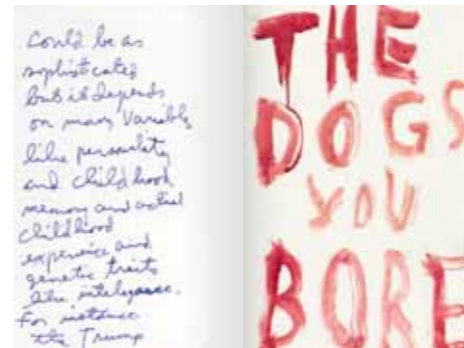 Could be as
sophisticated
but it depends
on many Variables
like personality
and childhood
memory and actual
childhood
experience and
genetic traits
like intelligence.
For instance
the Trump
THE
DOGS
YOU
BORE